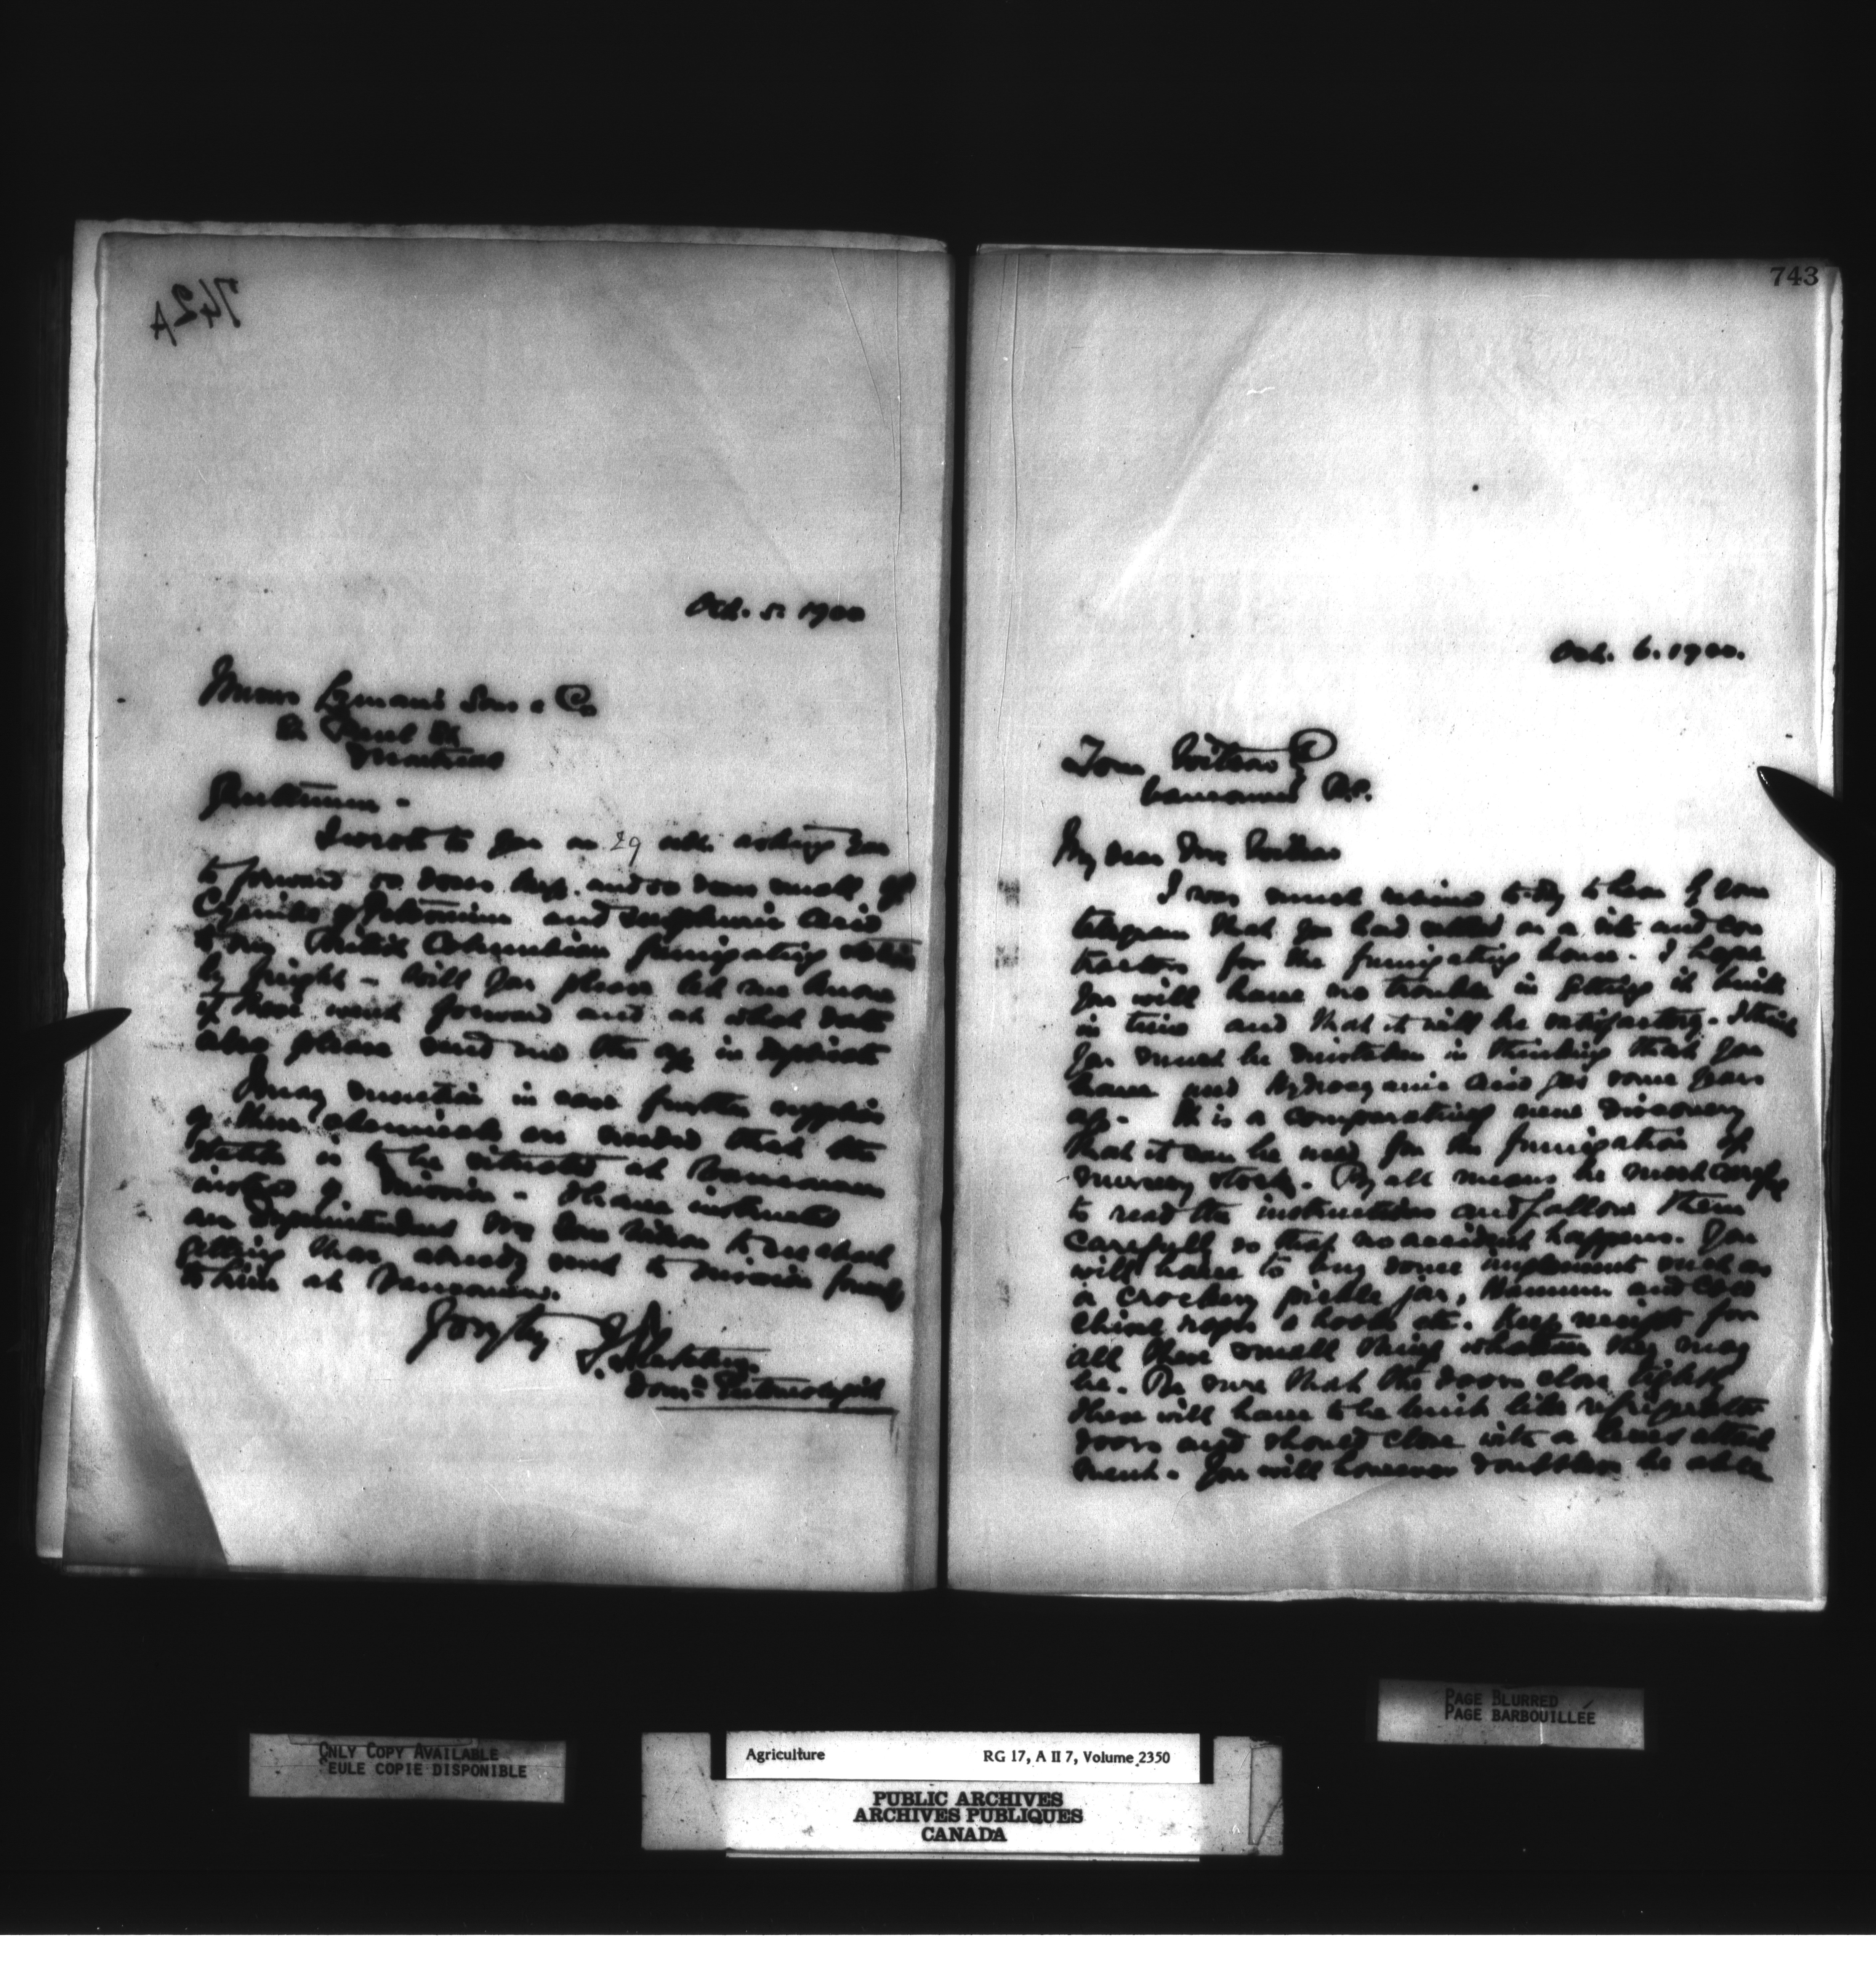 742A
Oct. 5. 1900
Messrs Lyman's Sons & Co
St. Paul St
Montreal
Gentlemen -
I wrote to you on 29 ult. asking you
to forward and small of
Cyanide of Potassium and sulphuric acid
to my British Columbian fumigating station
by freight - Will you please let me know
if these went forward and at what date
also please send me the a/c in duplicate
I may mention in case further supplies
of these chemicals are needed that the
station is to be situated at Vancouver
instead of Mission - I have instructed
our Superintendent Mr Tom Wilson to see about
getting those already sent to Mission
to him at Vancouver.
Yours truly J. Fletcher
Domn Entomologist
743
Oct. 6. 1900.
Tom Wilson
Vancouver B.C.
My dear Mr Wilson
I was much relieved to-day to hear by your
telegram that you had settled on a site and con
tractors for the fumigating house. I hope
you will have no trouble in getting it built
in time and that it will be satisfactory. I think
you must be mistaken in thinking that you
have used hydrocyanic acid gas some years
ago. It is a comparatively new discovery
that it can be used for the fumigation of
nursery stock. By all means be most careful
to read the instructions and follow them
carefully so that no accident happens. You
will have to buy some implements such as
a crockery pickle jar, Hammer and cold
chisel rope & hooks etc. Keep receipts for
all these small things whatever they may
be. Be sure that the doors close tightly
these will have to be built like refrigerator
doors and should close with a attach
ment. You will however doubtless be able
ONLY COPY AVAILABLE
SEULE COPIE DISPONIBLE
Agriculture RG 17, A II 7, Volume 2350
PUBLIC ARCHIVES
ARCHIVES PUBLIQUES
CANADA
PAGE BLURRED
PAGE BARBOUILLÉE